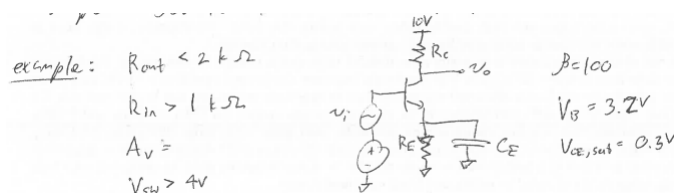 example: Rout < 2 kΩ
Rin > 1 kΩ
Av =
Vsw > 4V
10V
Rc
vo
vi
RE
CE
β=100
VB = 3.2V
VCE,sat = 0.3V